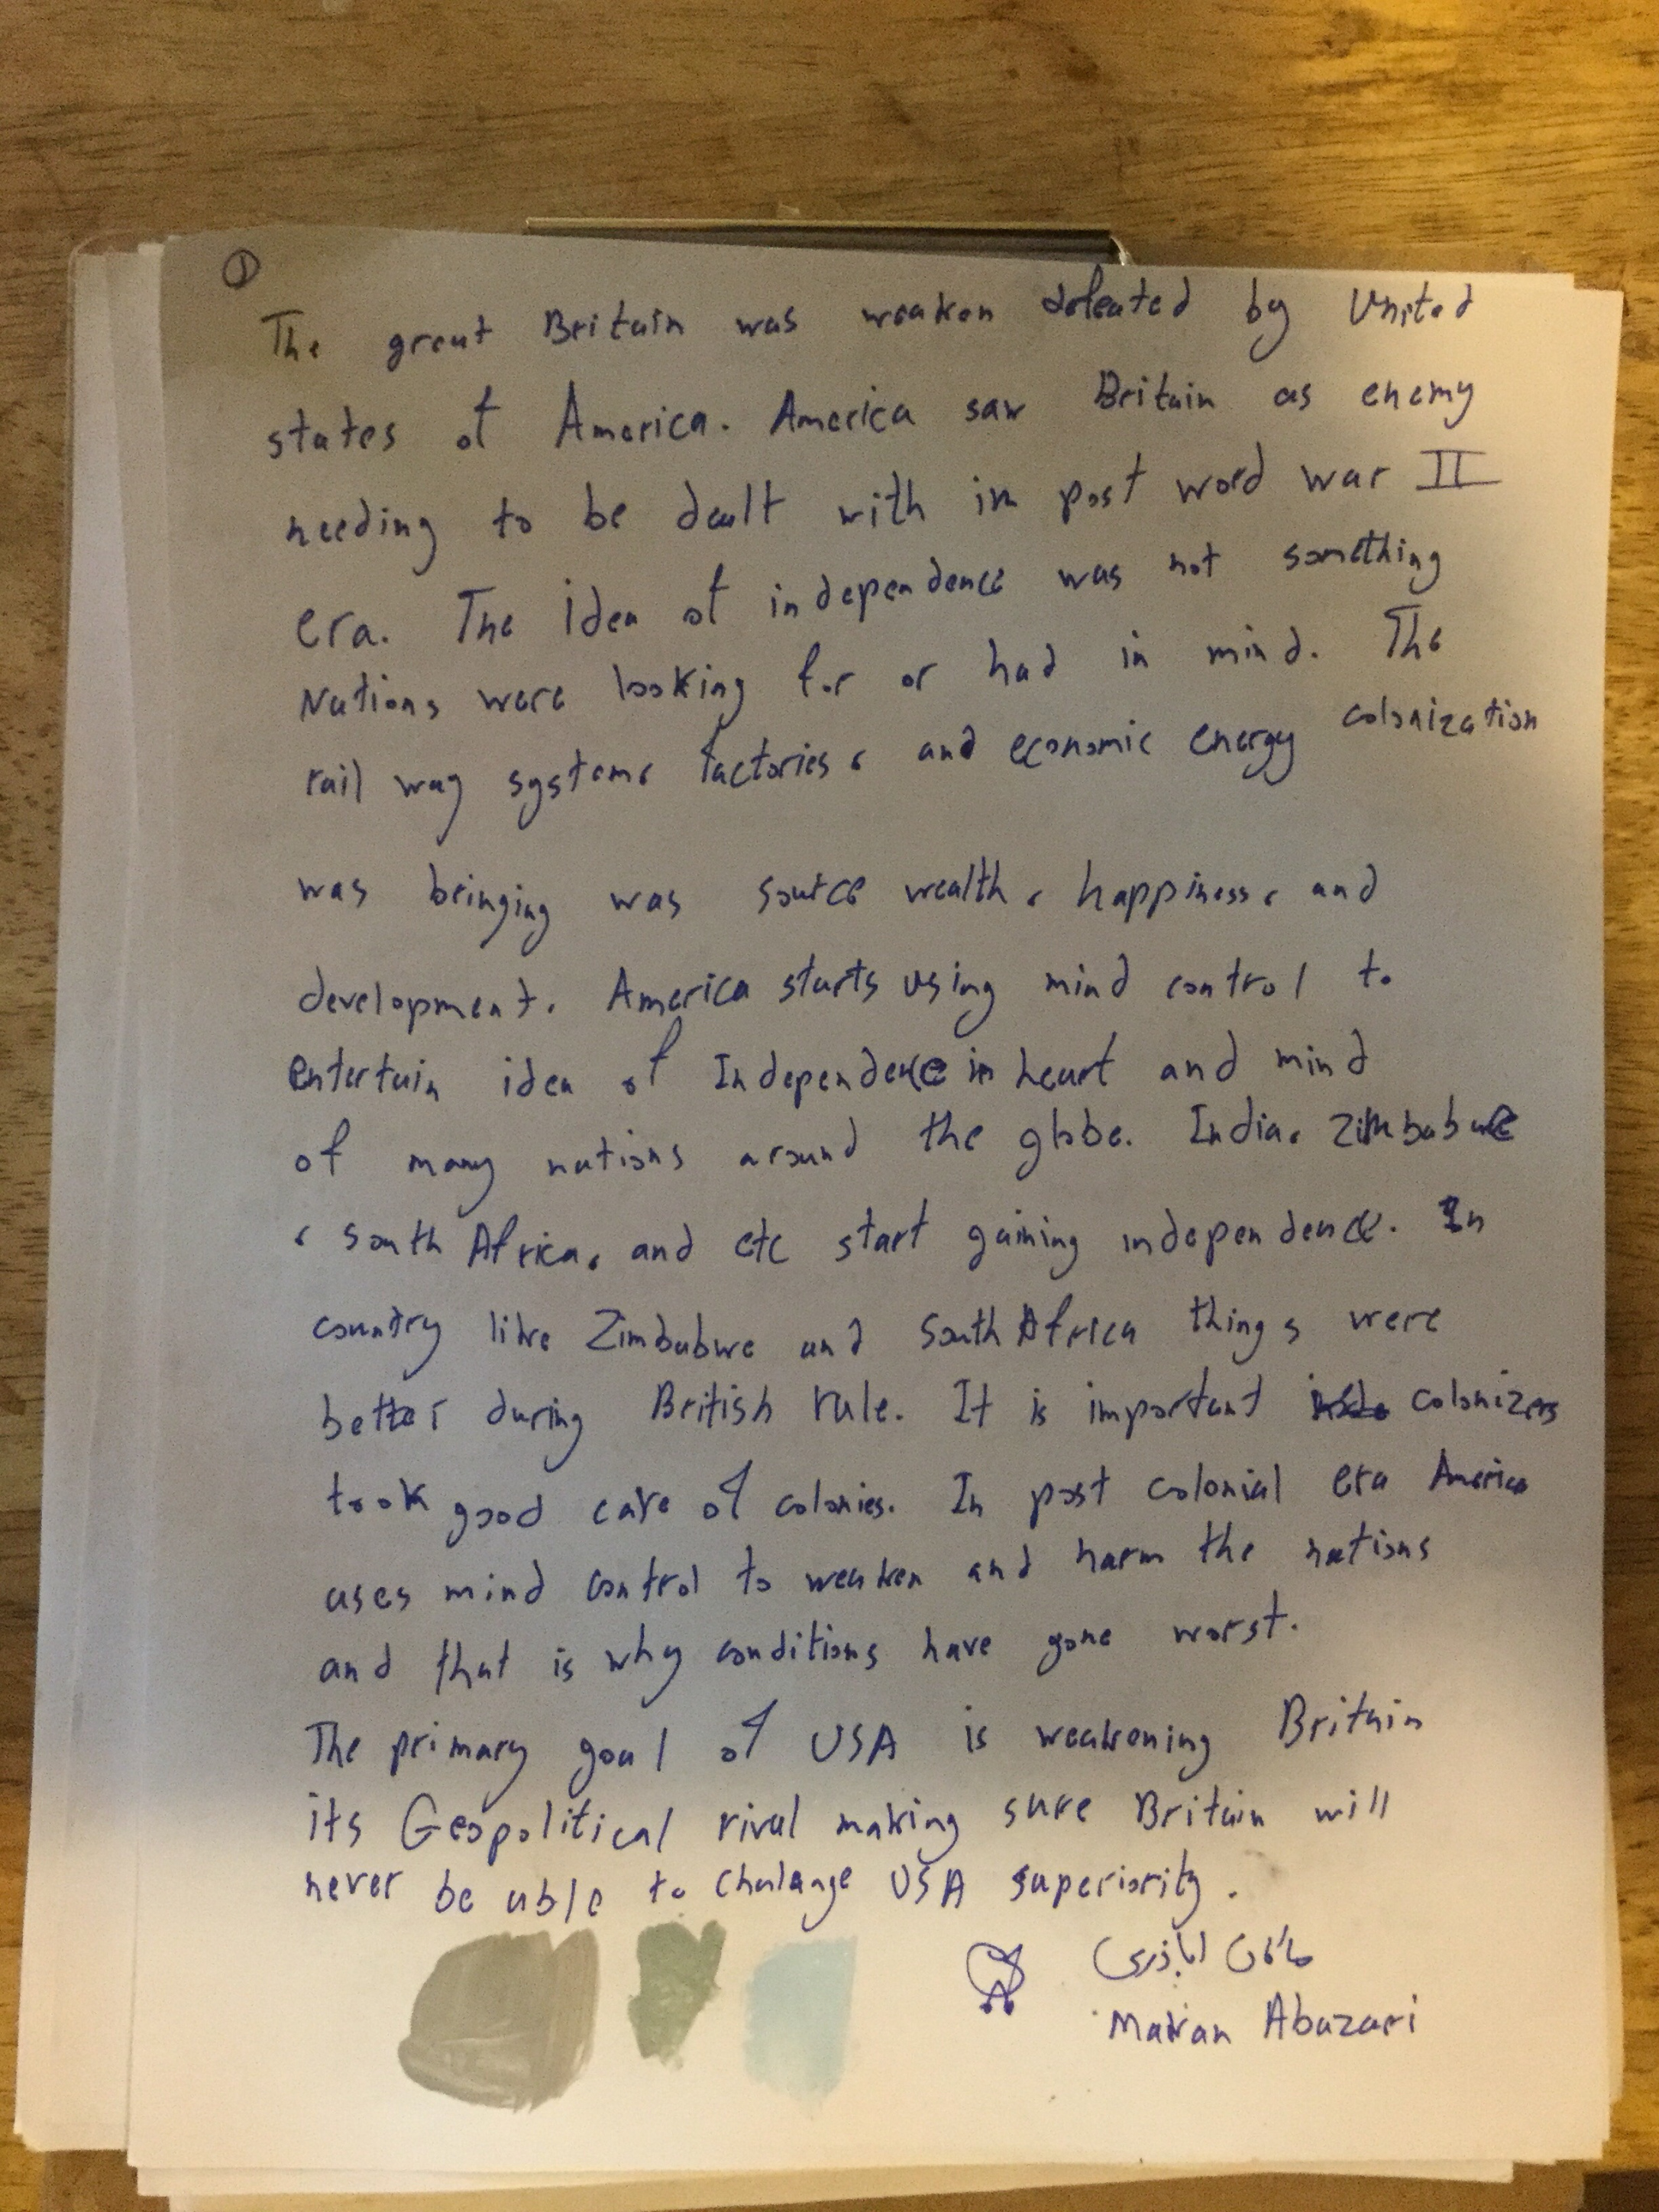 ①
The great Britain was weaken defeated by United
states of America. America saw Britain as enemy
needing to be dealt with in post word war II
era. The idea of independence was not something
Nations were looking for or had in mind. The
rail way system، factories، and economic energy colonization
was bringing was source wealth، happiness، and
development. America starts using mind control to
entertain idea of Independence in heart and mind
of many nations around the globe. India، Zimbabwe
، South Africa، and etc start gaining independence. In
country like Zimbabwe and South Africa things were
better during British rule. It is important colonizers
took good care of colonies. In post colonial era America
uses mind control to weaken and harm the nations
and that is why conditions have gone worst.
The primary goal of USA is weakening Britain
its Geopolitical rival making sure Britain will
never be able to chalange USA superiority.
اباذری
Makan Abazari